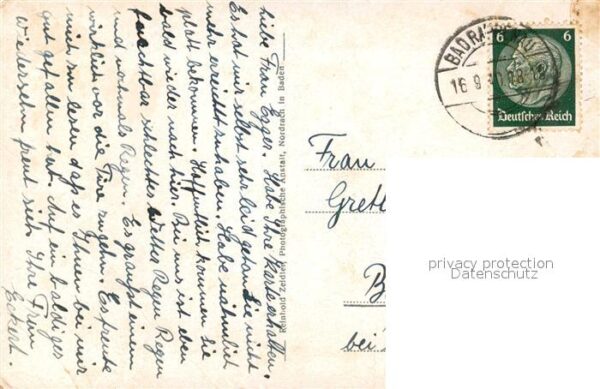 liebe Frau Egger. Habe Ihre Karte erhalten.
Es hat mir selbst sehr leid getan Sie nicht
mehr erreicht zu haben. Habe nämlich
platt bekommen. Hoffentlich kommen Sie
bald wieder nach hier. Bei uns ist eben
furchtbar schlechtes Wetter Regen Regen
und nochmals Regen. Es graust einem
wirklich vor die Türe zu gehen. Es freute
mich zu lesen daß es Ihnen bei mir
gut gefallen hat. Auf ein baldiges
Wiedersehn freut sich Ihre Frau
Eckert.
Reinhold Photographische Anstalt, Nordrach in Baden
BAD
16.9.
6 6
Deutsches Reich
Frau
Gretl
B
bei
privacy protection
Datenschutz